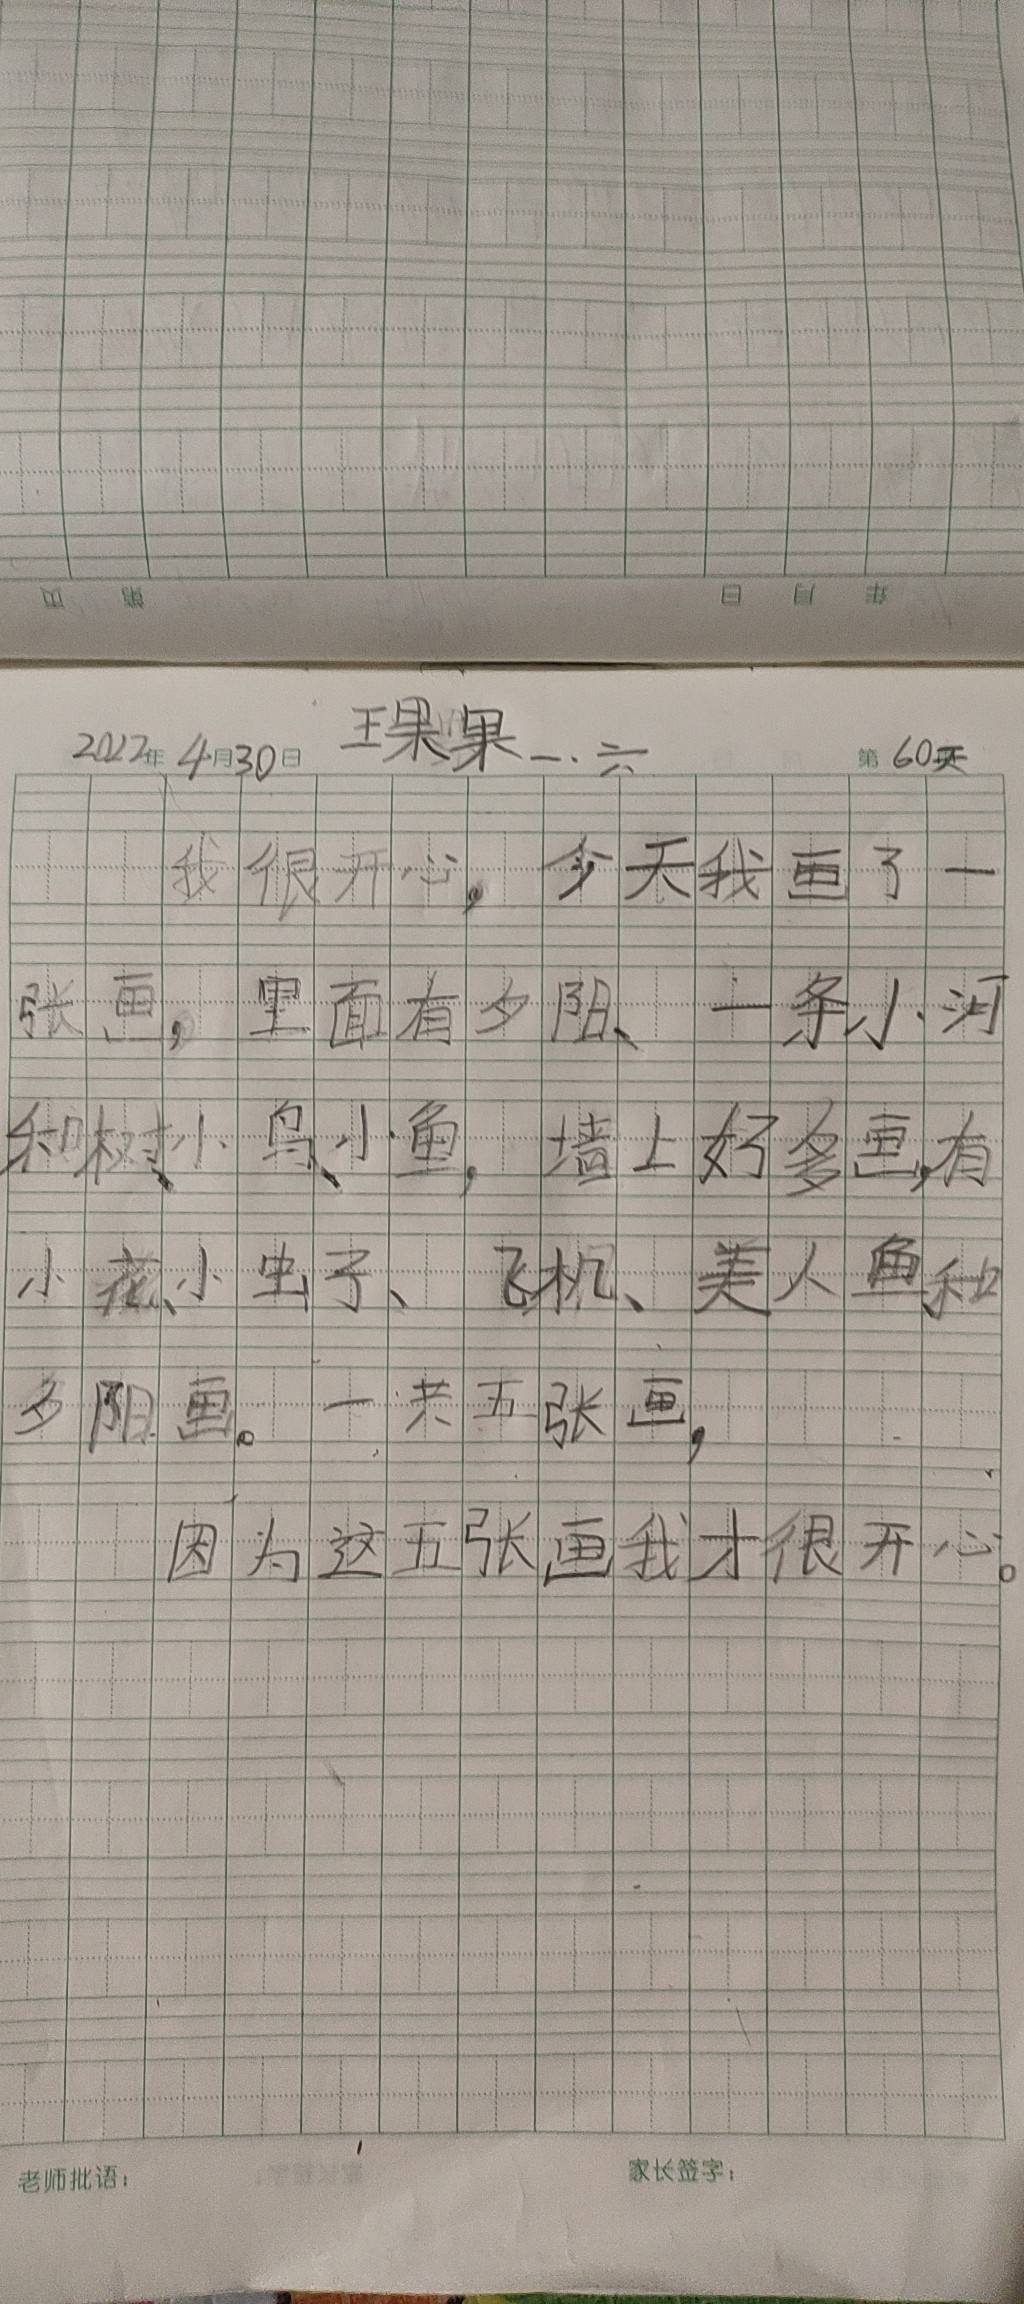 页 第 日 月 年
2022年 4月30日 王果果 一.六 第 60天
我很开心，今天我画了一
张画，里面有夕阳、一条小河
和树、小鸟、小鱼，墙上好多画，有
小花、小虫子、飞机、美人鱼和
夕阳画。一共五张画，
因为这五张画我才很开心。
老师批语： 家长签字：